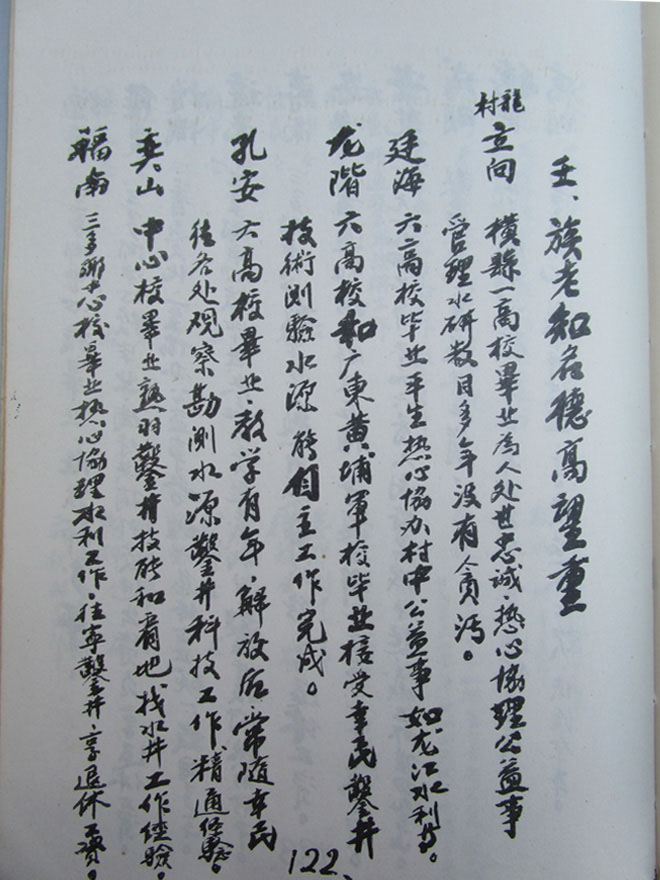 壬、族老知名德高望重
龍村
立向 横縣一高校畢业為人处世忠誠、热心協理公益事
管理水研数目多年没有貪污。
廷海 六高校毕业平生热心協办村中公益事如龙江水利等。
龙階 六高校和广東黄埔軍校毕业接受幸民鑿井
技術測驗水源能自主工作完成。
孔安 六高校畢业、教学有年、解放后常隨幸民
往各处观察勘測水源鑿井科技工作精通经驗。
奕山 中心校畢业熟习鑿井技能和看地找水井工作经驗。
福南 三多鄉中心校畢业热心協理水利工作、往寧鑿井、享退休工資。
122、